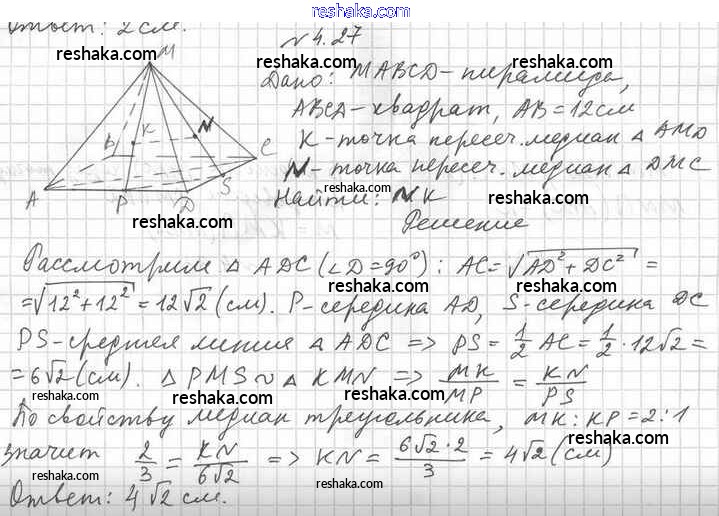 reshaka.com
Ответ: 2 см.
reshaka.com
№ 4.27
M
reshaka.com
Дано: MABCD - пирамида,
reshaka.com
ABCD - квадрат, AB = 12 см
K - точка пересеч. медиан △ AMD
N - точка пересеч. медиан △ DMC
Найти: NK
B K N C
A P D S
reshaka.com
reshaka.com
Решение
reshaka.com
Рассмотрим △ ADC (∠D = 90°): AC = √(AD² + DC²) =
= √(12² + 12²) = 12√2 (см). P - середина AD, S - середина DC
reshaka.com
reshaka.com
PS - средняя линия △ ADC => PS = 1/2 AC = 1/2 · 12√2 =
reshaka.com
= 6√2 (см). △ PMS ~ △ KMN => MK/MP = KN/PS
reshaka.com
reshaka.com
По свойству медиан треугольника, MK : KP = 2 : 1
reshaka.com
Значит 2/3 = KN/6√2 => KN = 6√2 · 2/3 = 4√2 (см)
reshaka.com
reshaka.com
Ответ: 4√2 см.
reshaka.com
reshaka.com